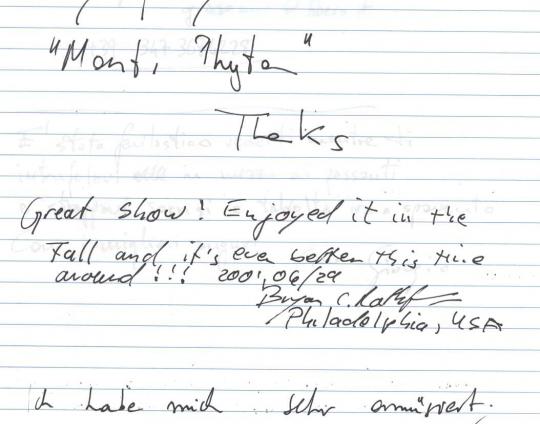 "Monti Phyton"
Thaks
Great show! Enjoyed it in the
Fall and it's even better this time
around!!! 2001,06/29
Bryan C.
Philadelphia, USA
Ich habe mich sehr amüsiert.